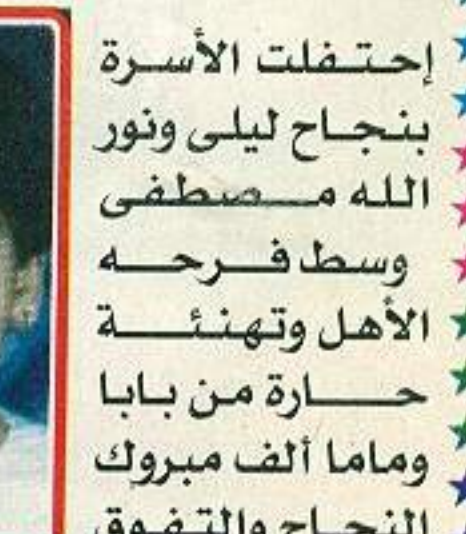 إحتفلت الأسرة
بنجاح ليلى ونور
الله مصطفى
وسط فرحه
الأهل وتهنئة
حارة من بابا
وماما ألف مبروك
النجاح والتفوق